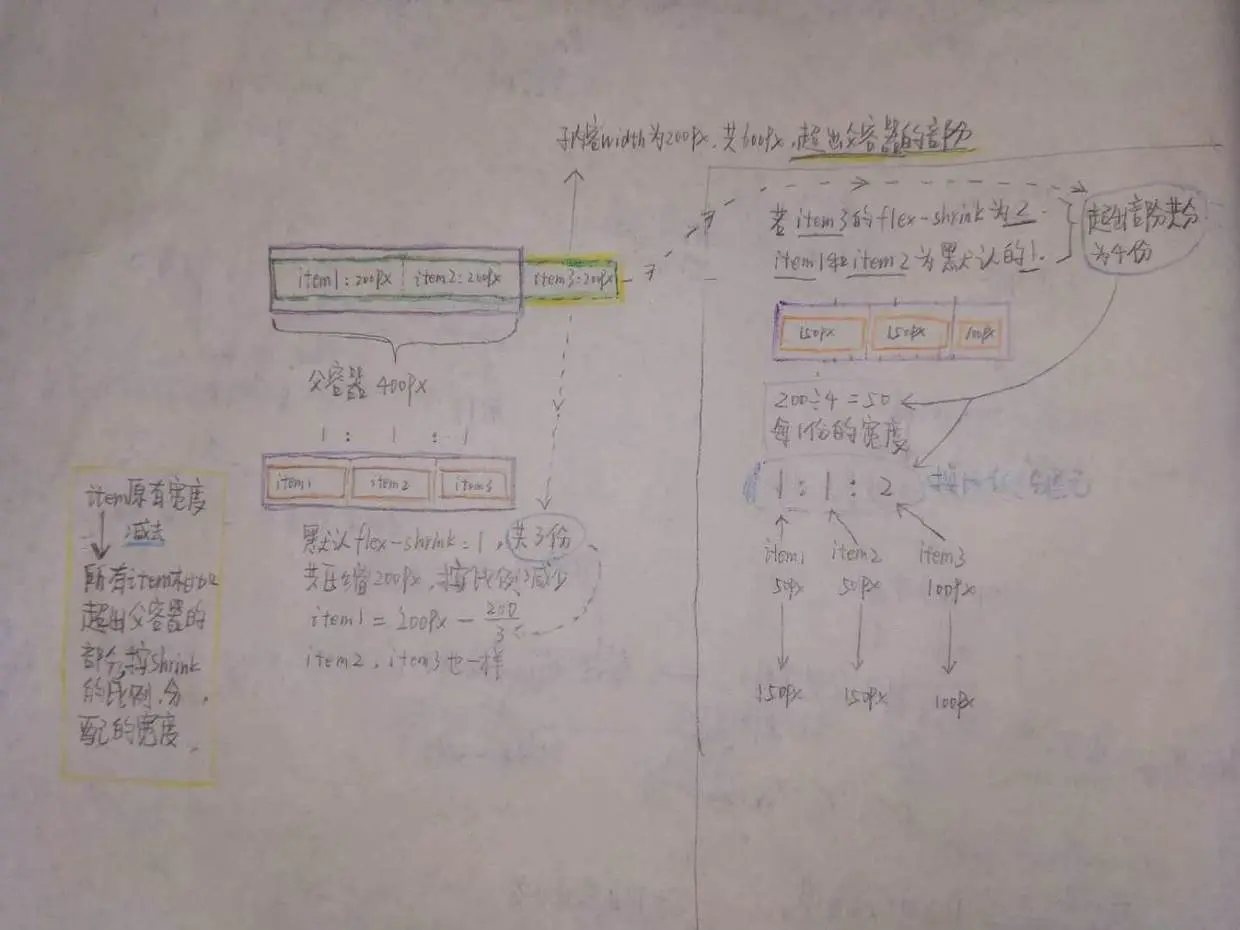 子内容width为200px,共600px,超出父容器的部分
item1:200px item2:200px item3:200px
父容器 400px
1 : 1 : 1
item1 item2 item3
默认flex-shrink=1,共3份
共压缩200px,按比例减少
item1=200px-200/3
item2,item3也一样
item原有宽度
减去
所有item相比
超出父容器的
部分,按shrink
的比例,分
配的宽度
若item3的flex-shrink为2.
item1和item2为默认的1.
超出部分共分
为4份
150px 150px 100px
200÷4=50
每1份的宽度
1 : 1 : 2
item1 item2 item3
50px 50px 100px
150px 150px 100px